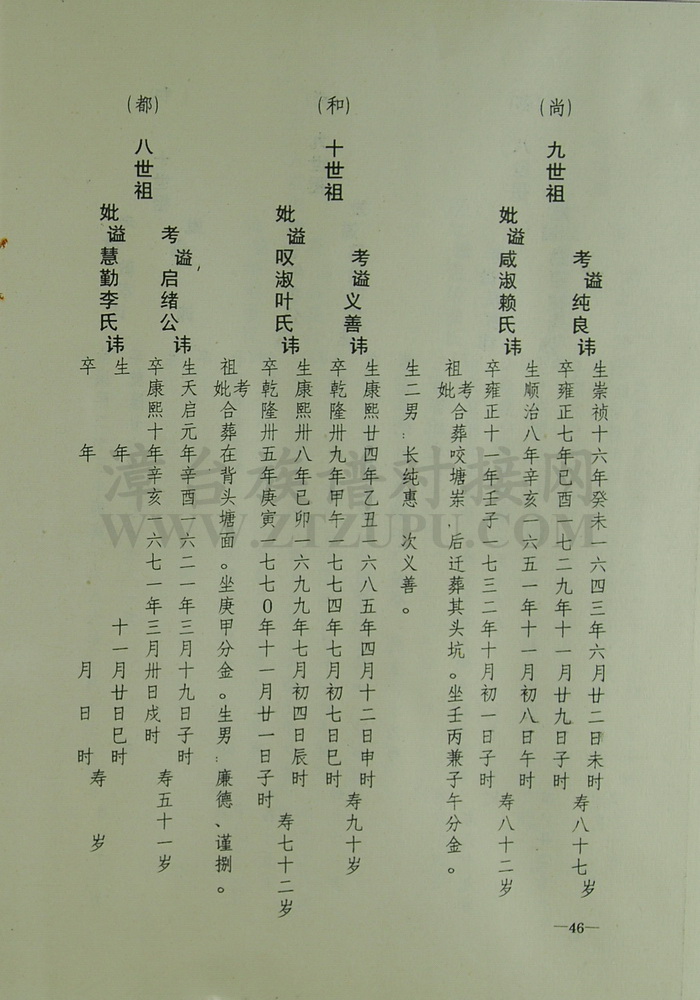 (尚)
九世祖
考谥纯良讳
生崇祯十六年癸未一六四三年六月廿二日未时
卒雍正七年已酉一七二九年十一月廿九日子时
寿八十七岁
妣谥咸淑赖氏讳
生顺治八年辛亥一六五一年十一月初八日午时
卒雍正十一年壬子一七三二年十月初一日子时
寿八十二岁
祖考妣合葬咬塘岽,后迁葬其头坑。坐壬丙兼子午分金。
生二男:长纯惠 次义善。
(和)
十世祖
考谥义善讳
生康熙廿四年乙丑一六八五年四月十二日申时
卒乾隆卅九年甲午一七七四年七月初七日巳时
寿九十岁
妣谥叹淑叶氏讳
生康熙卅八年已卯一六九九年七月初四日辰时
卒乾隆卅五年庚寅一七七0年十一月廿一日子时
寿七十二岁
祖考妣合葬在背头塘面。坐庚甲分金。生男:廉德、谨捌。
(都)
八世祖
考谥启绪公讳
生天启元年辛酉一六二一年三月十九日子时
卒康熙十年辛亥一六七一年三月卅日戌时
寿五十一岁
妣谥慧勤李氏讳
生 年 十一月廿日巳时
卒 年 月 日 时
寿 岁
—46—
漳台族谱对接网
WWW.ZTZUPU.COM